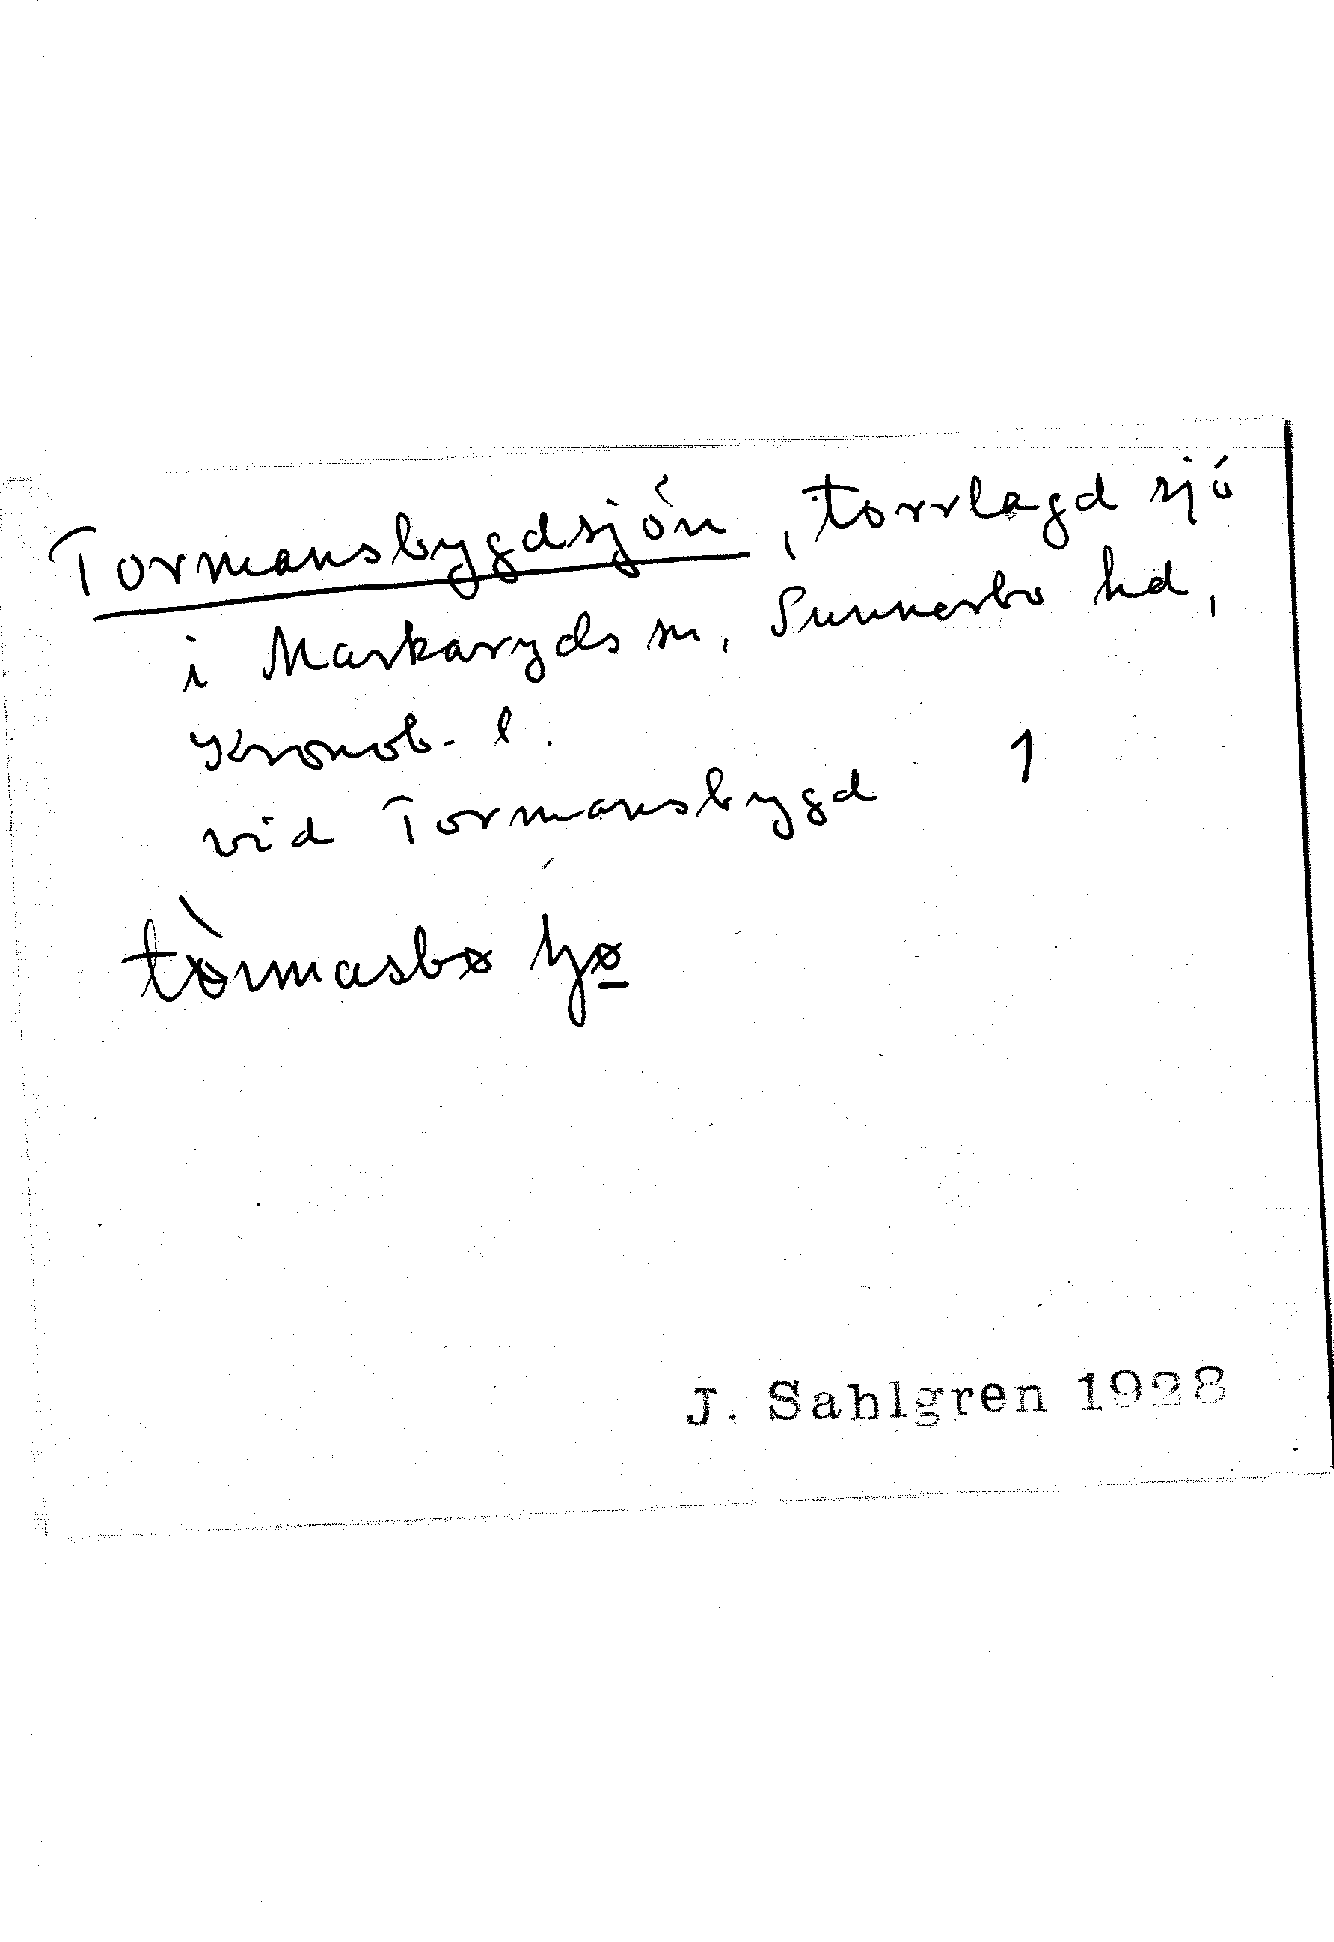 Tormansbygdsjön, torrlagd sjö
i Markaryds sn, Sunnerbo hd,
Kronob. l.
vid Tormansbygd 1
J. Sahlgren 1928